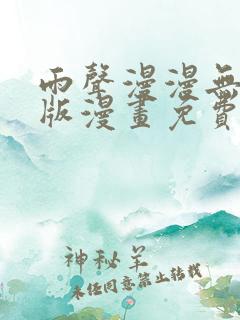 雨聲漫漫無
版漫畫免費
神秘羊
未經同意禁止轉載